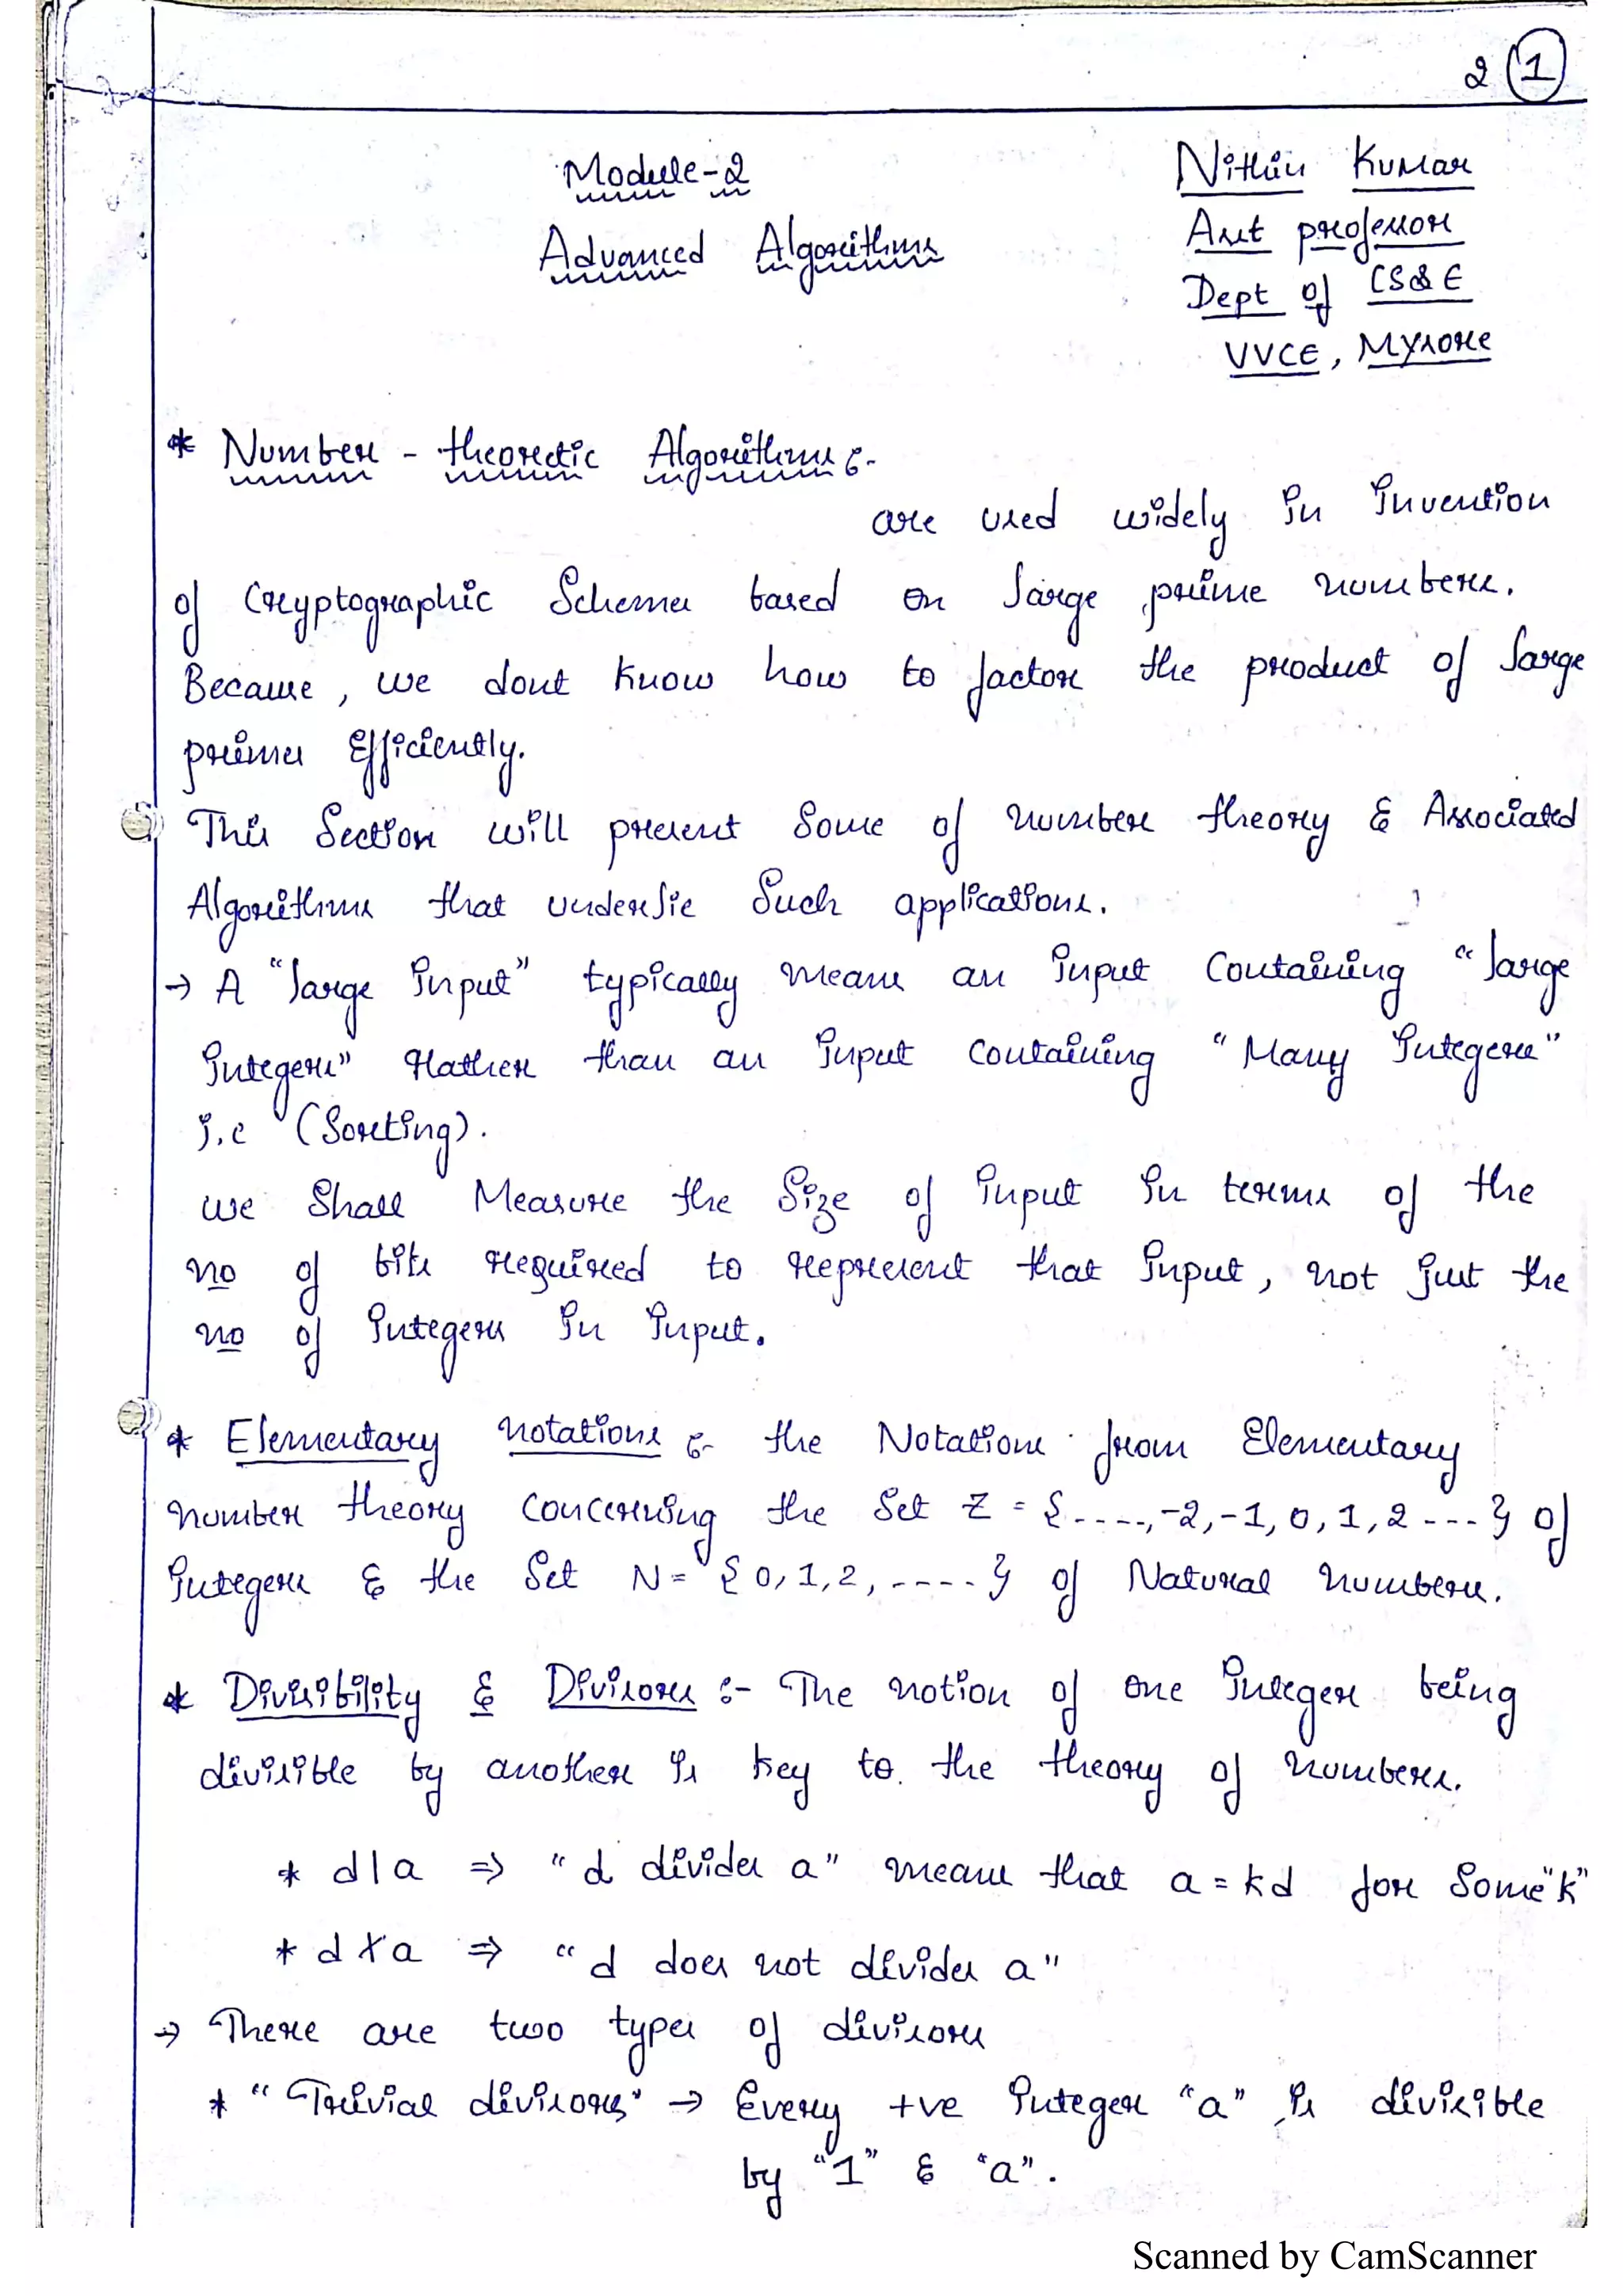 2 1
Module-2
Advanced Algorithms
Nithin Kumar
Asst professor
Dept of CS&E
VVCE, Mysore
* Number - theoretic Algorithms :-
are used widely in invention
of Cryptographic Schemes based on large prime numbers.
Because, we dont know how to factor the product of large
primes Efficiently.
This Section will present Some of number theory & Associated
Algorithms that underlie Such applications.
→ A "large input" typically means an input Containing "large
integers" rather than an input Containing "Many integers"
i.e (Sorting).
we Shall Measure the Size of input in terms of the
no of bits required to represent that input, not just the
no of integers in input.
* Elementary notations :- the Notations from Elementary
number theory Concerning the Set Z = {....,-2,-1,0,1,2 ---} of
integers & the Set N = {0,1,2,----} of Natural numbers.
* Divisibility & Divisors :- The notion of one integer being
divisible by another is key to the theory of numbers.
* d|a ⇒ "d divides a" means that a = kd for Some "k"
* d∤a ⇒ "d does not divides a"
→ There are two types of divisors
* "Trivial divisors" → Every +ve integer "a" is divisible
by "1" & "a".
Scanned by CamScanner